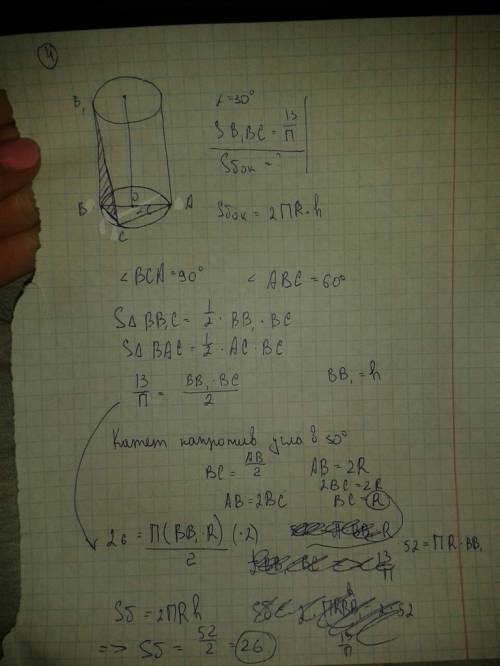 4
B₁
O
B
A
C
α=30°
SB₁BC = 13/П
Sбок = ?
Sбок = 2ПR·h
∠BCA=90°  ∠ABC = 60°
S∆ BB₁C = 1/2 · BB₁ · BC
S∆ BAC = 1/2 · AC · BC
13/П = BB₁·BC/2  BB₁ = h
Катет напротив угла в 30°
BC = AB/2  AB = 2R
2BC = 2R
AB = 2BC  BC = R
26 = П(BB₁·R)/2 (·2)
52 = ПR·BB₁
Sб = 2ПRh
=> Sб = 52/2 = 26